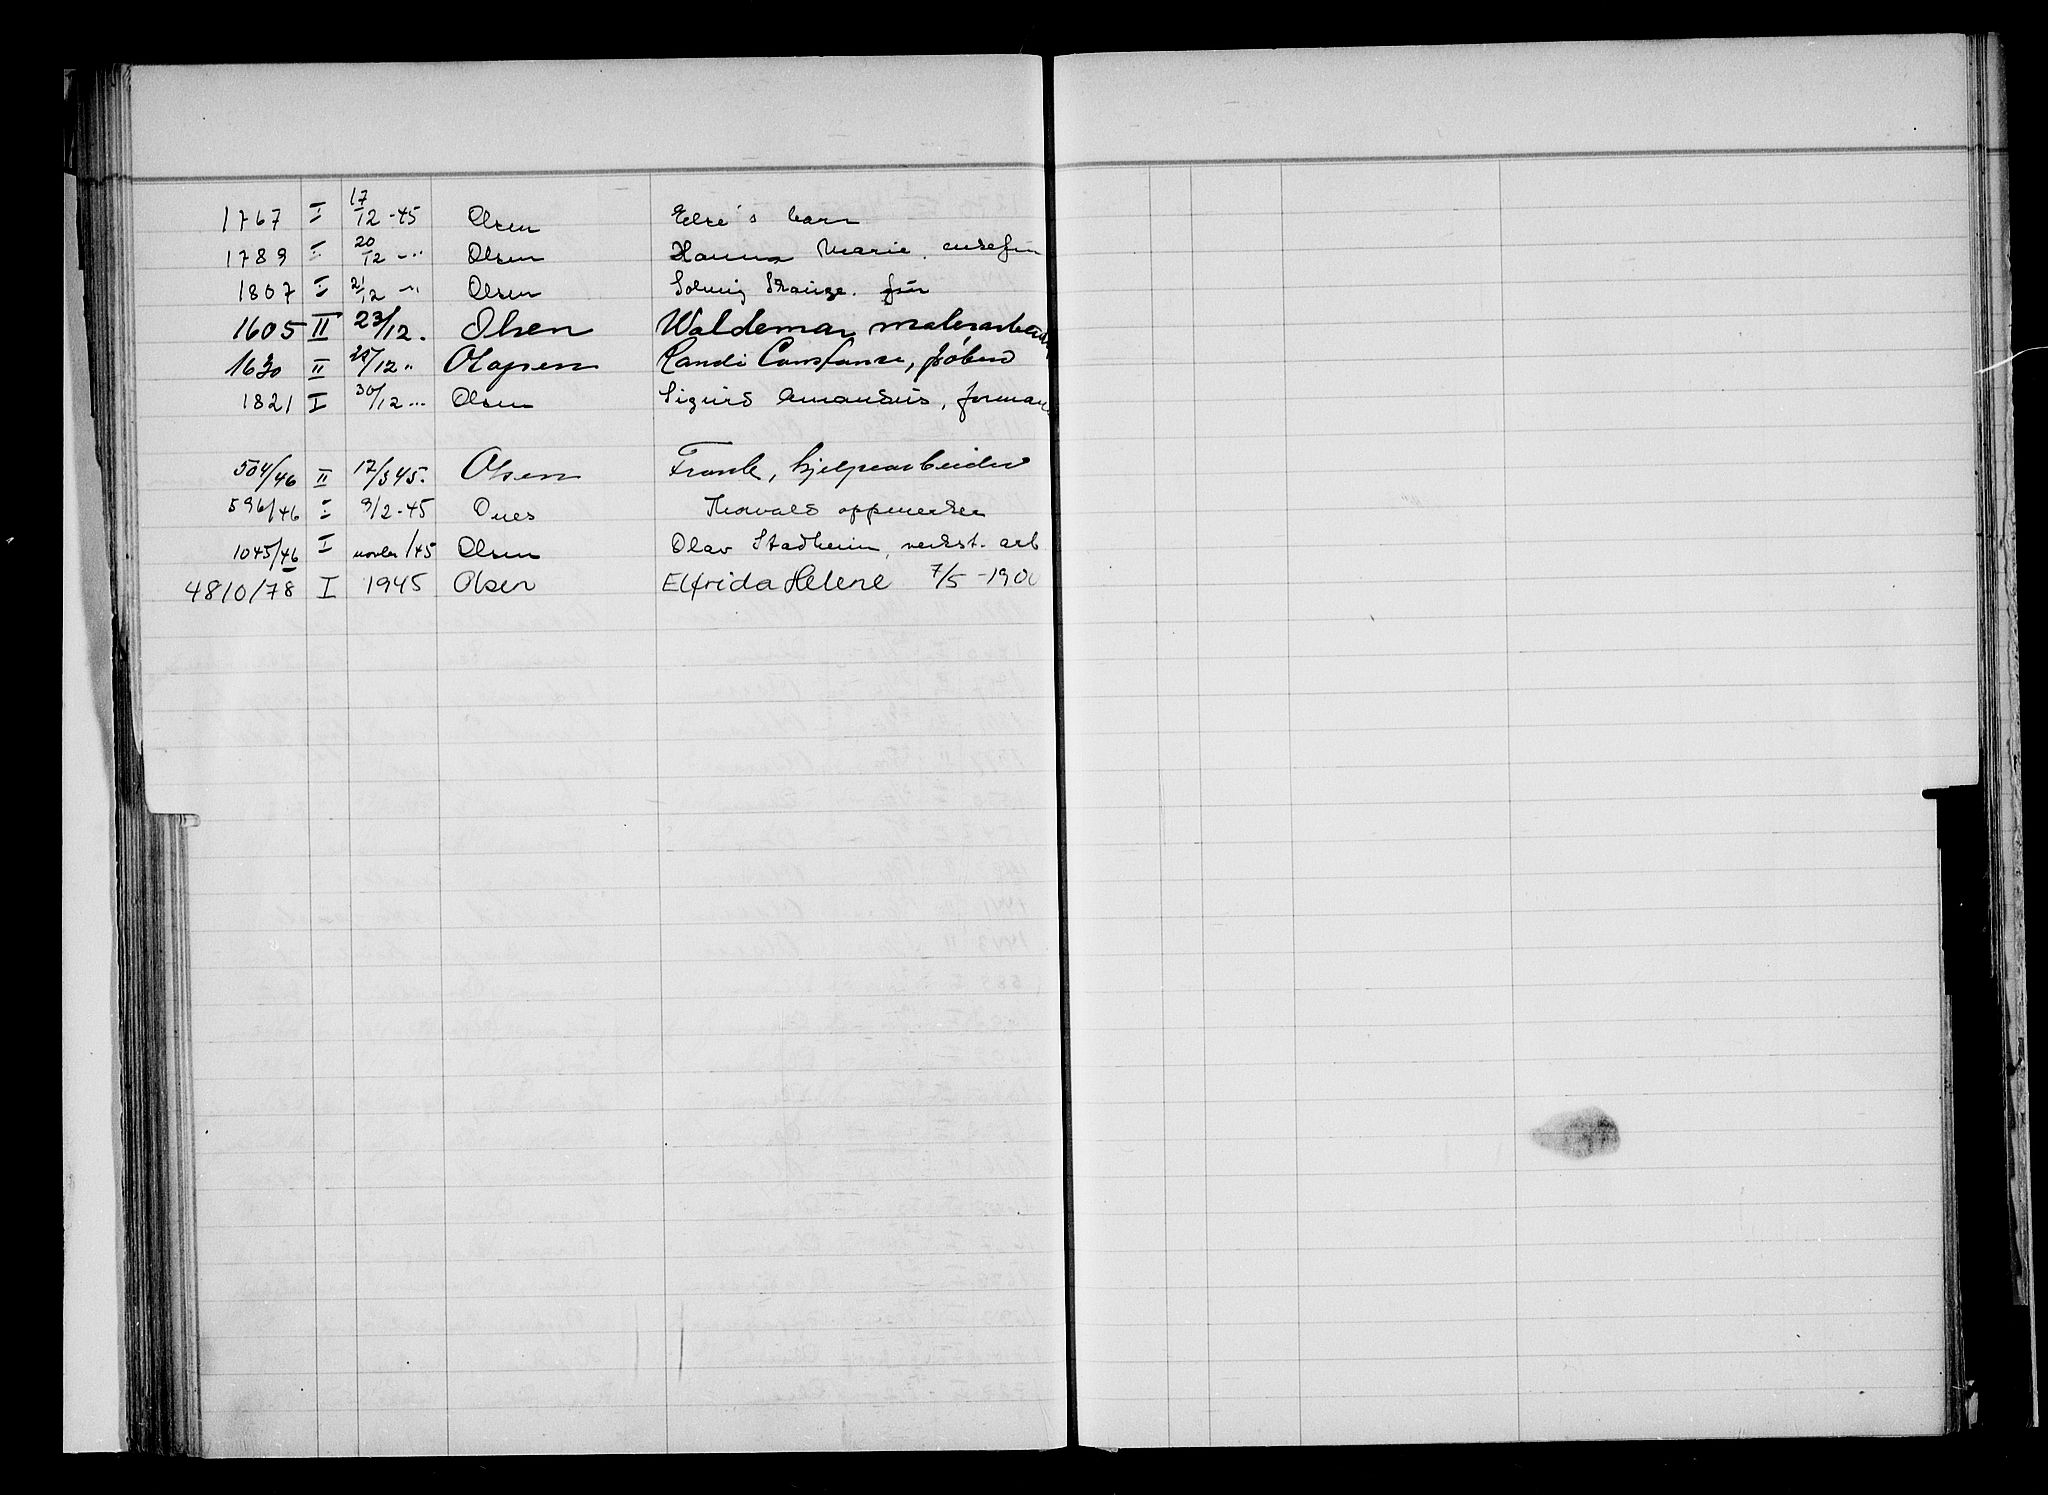 1767 I 17/12 -45 Olsen Else's barn
1789 I 20/12 -"- Olsen Hanna Marie.
1807 I 21/12 -"- Olsen Solveig frúe
1605 II 23/12. Olsen Waldemar malerarbeider
1630 II 25/12 " Olapsen Randi Constance,
1821 I 30/12 -"- Olsen Sigurd Amandus, forman
504/46 II 17/3 45. Olsen Frank, hjelpearbeider
596/46 I 9/2 -45 Ones Thorvald oppmerker
1045/46 I novbr/45 Olsen Olav Stadheim, verkst. arb
4810/78 I 1945 Olsen Elfrida Helene 7/5 -1900